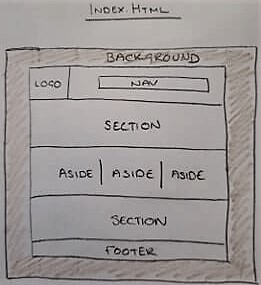 INDEX.HTML
BACKGROUND
LOGO NAV
SECTION
ASIDE ASIDE ASIDE
SECTION
FOOTER